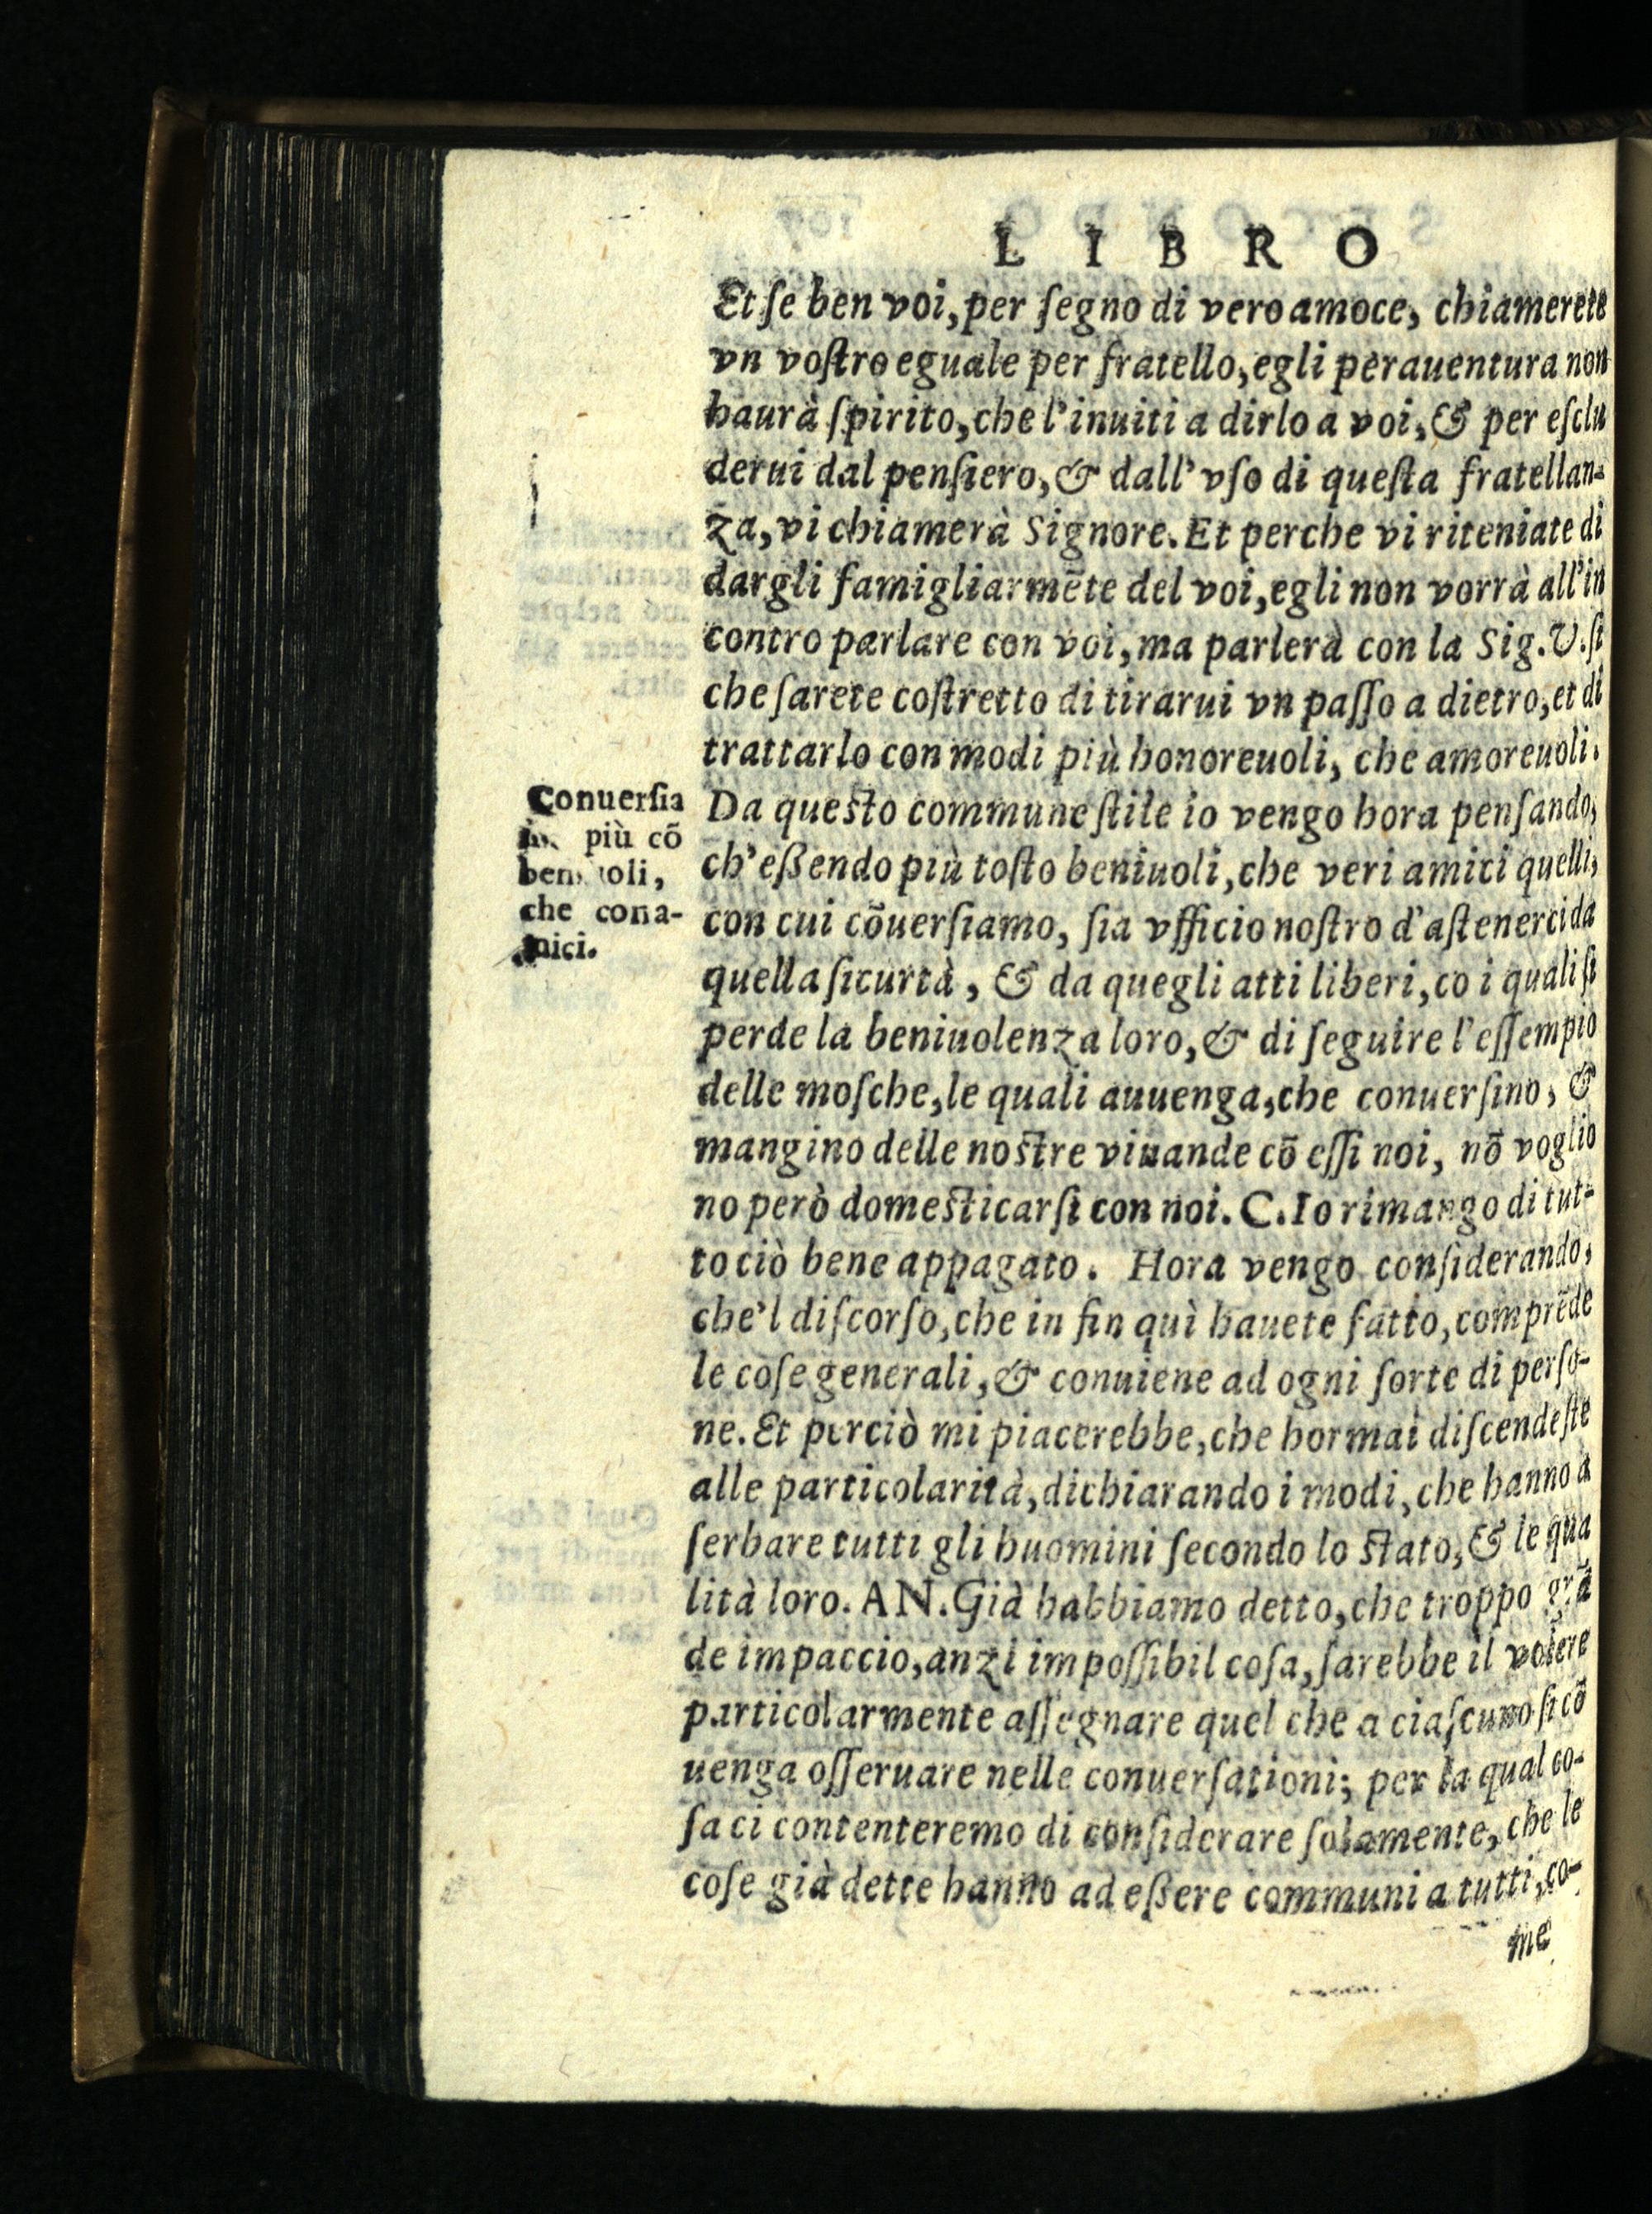 LIBRO
Et ſe ben voi, per ſegno di vero amoce, chiamerete
vn voſtro eguale per fratello, egli perauentura non
haurà ſpirito, che l'inuiti a dirlo a voi, & per eſclu
derui dal penſiero, & dall' vſo di queſta fratellan-
za, vi chiamerà Signore. Et perche vi riteniate di
dargli famigliarmēte del voi, egli non vorrà all'in
contro parlare con voi, ma parlerà con la Sig. V. ſi
che ſarete coſtretto di tirarui vn paſſo a dietro, et di
trattarlo con modi più honoreuoli, che amoreuoli.
Da queſto commune ſtile io vengo hora penſando,
ch'eßendo più toſto beniuoli, che veri amici quelli,
con cui cōuerſiamo, ſia vfficio noſtro d'aſtenerci da
quella ſicurtà, & da quegli atti liberi, co i quali ſi
perde la beniuolenza loro, & di ſeguire l'eſſempio
delle moſche, le quali auuenga, che conuerſino, &
mangino delle noſtre viuande cō eſſi noi, nō voglio
no però domeſticarſi con noi. C. Io rimango di tut-
to ciò bene appagato. Hora vengo conſiderando,
che'l diſcorſo, che in fin quì hauete fatto, comprēde
le coſe generali, & conuiene ad ogni ſorte di perſo-
ne. Et perciò mi piacerebbe, che hormai diſcendeſte
alle particolarità, dichiarando i modi, che hanno a
ſerbare tutti gli huomini ſecondo lo ſtato, & le qua
lità loro. AN. Già habbiamo detto, che troppo grā
de impaccio, anzi impoſſibil coſa, ſarebbe il volere
particolarmente aſſegnare quel che a ciaſcuno ſi cō
uenga oſſeruare nelle conuerſationi; per la qual co-
ſa ci contenteremo di conſiderare ſolamente, che le
coſe già dette hanno ad eßere communi a tutti, co-
me
Conuerſia
più cō
che con a-
mici.